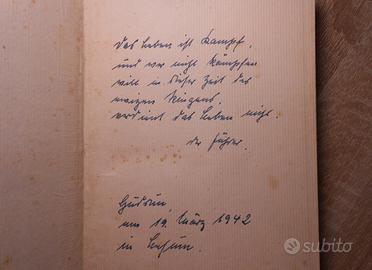 Das Leben ist Kampf,
und wer nicht kämpfen
will in dieser Zeit des
ewigen Ringens,
verdient das Leben nicht.
der Führer.
Gudrun,
am 19. März 1942
in
subito